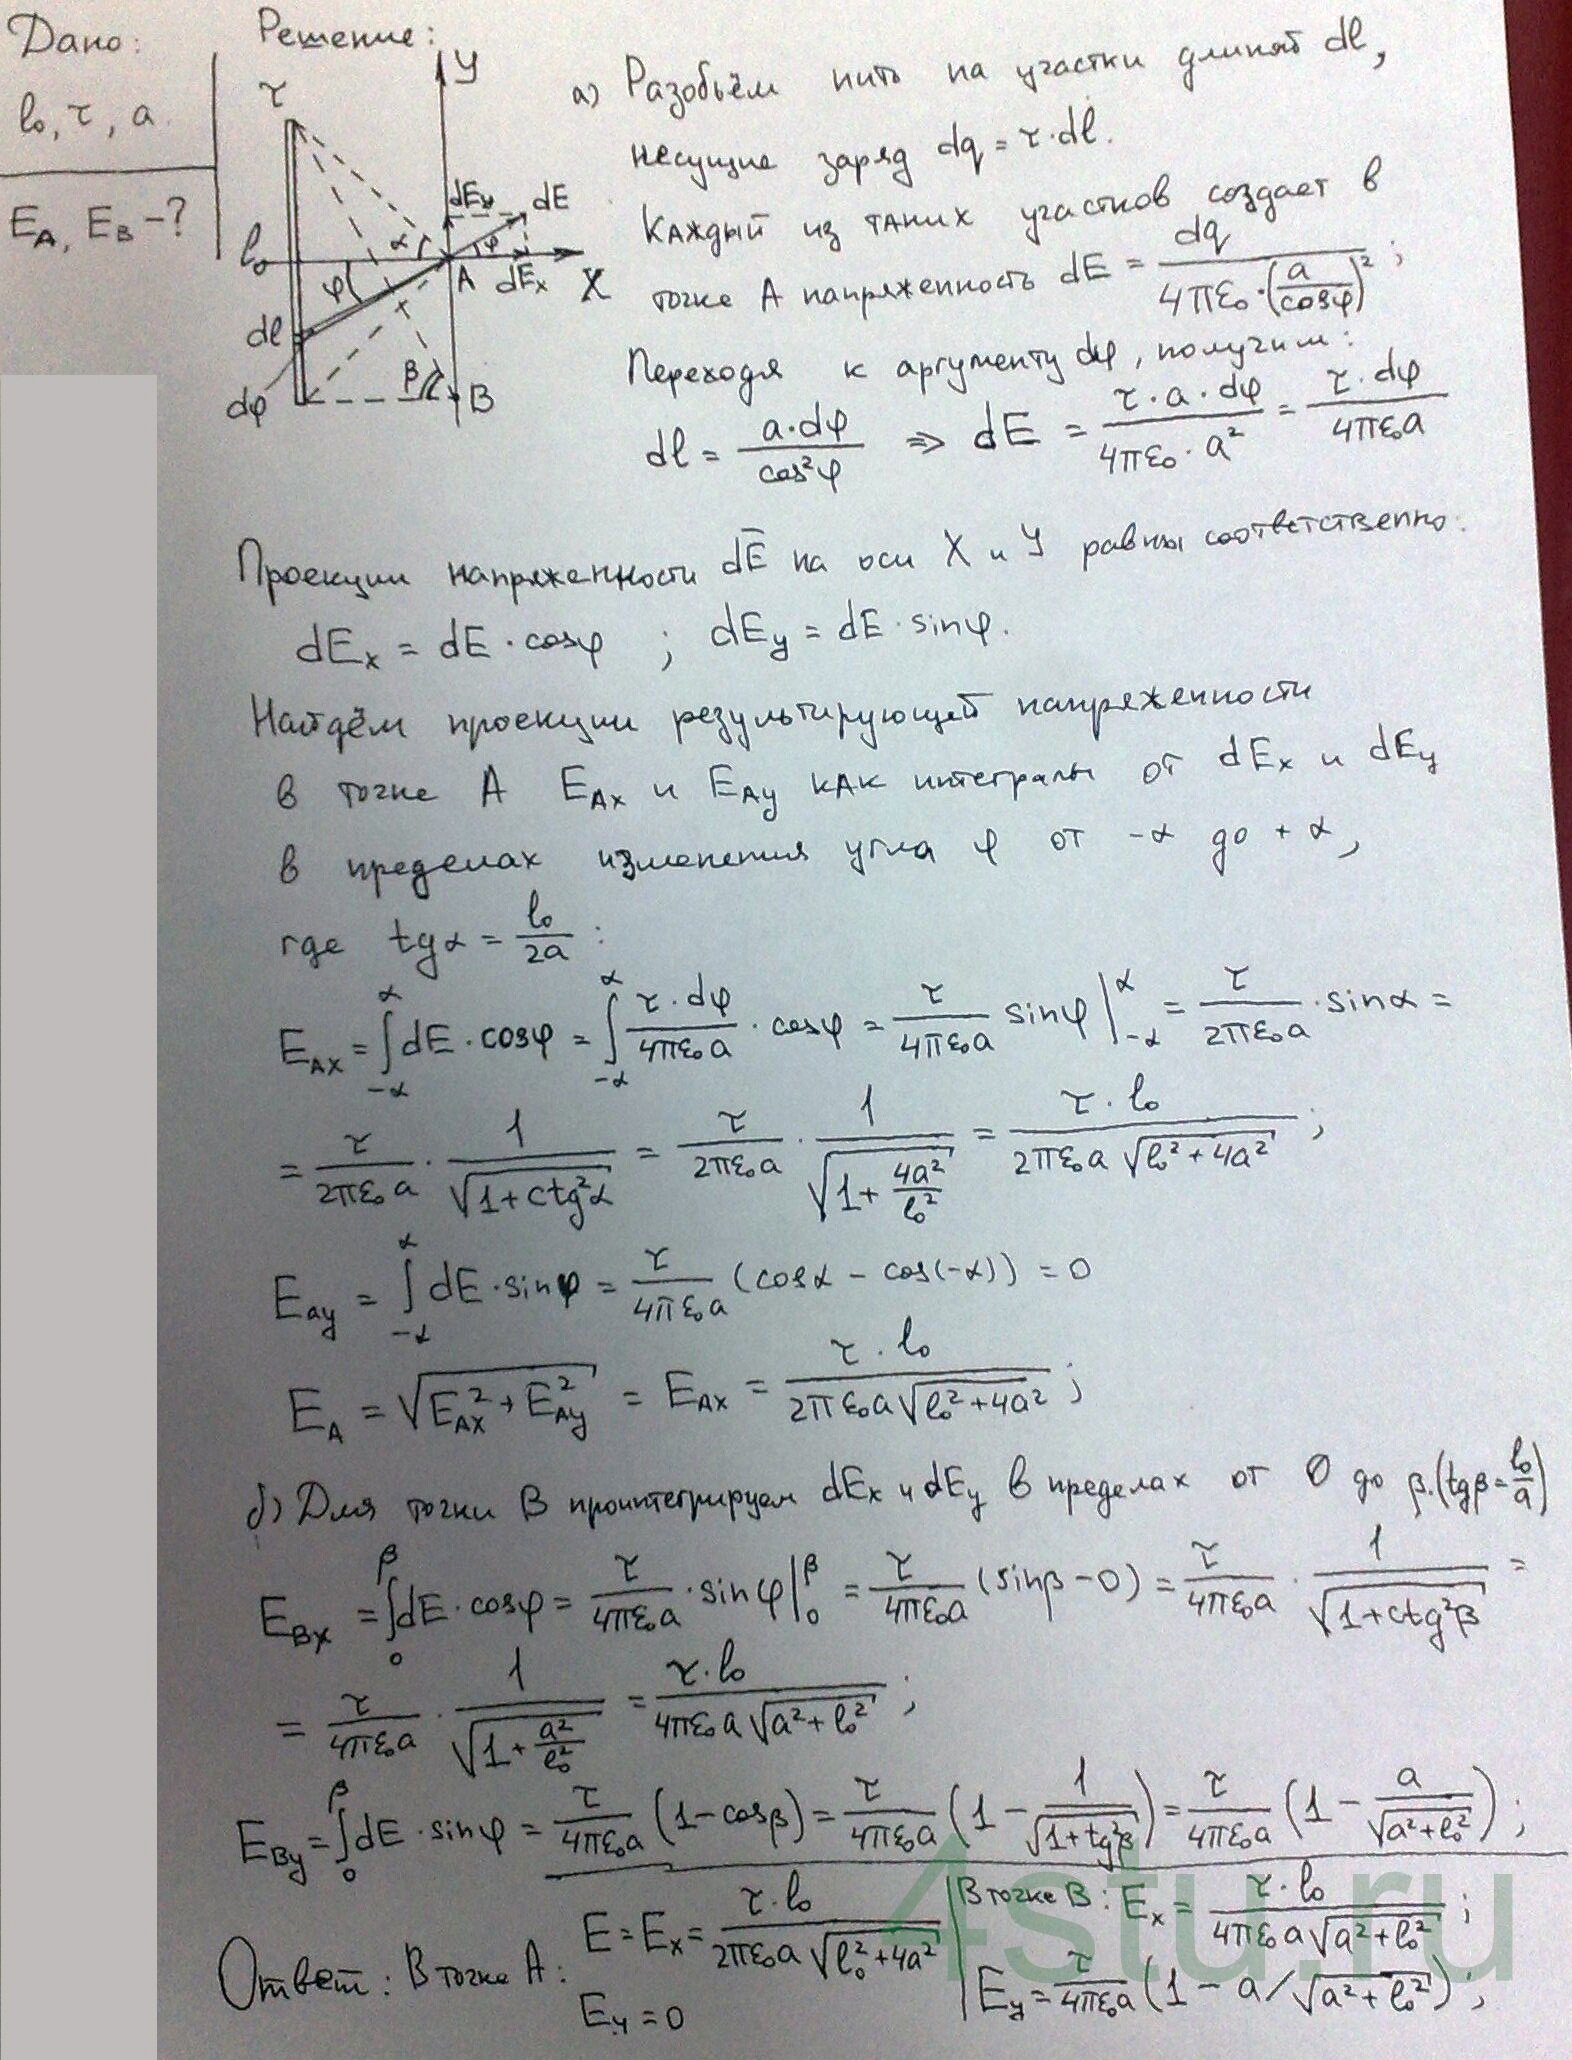 Дано:
l₀, τ, a.
E_A, E_B – ?
Решение:
τ
Y
dE_y
dE
l₀
α
φ
A
dE_x
X
φ
dl
β
B
dφ
а) Разобьём нить на участки длиной dl,
несущие заряд dq = τ·dl.
Каждый из таких участков создает в
точке A напряженность dE = dq / (4πε₀·(a/cosφ)²);
Переходя к аргументу dφ, получим:
dl = a·dφ / cos²φ ⇒ dE = τ·a·dφ / (4πε₀·a²) = τ·dφ / (4πε₀a)
Проекции напряженности dE̅ на оси X и Y равны соответственно:
dE_x = dE·cosφ ; dE_y = dE·sinφ.
Найдём проекции результирующей напряженности
в точке A E_Ax и E_Ay как интегралы от dE_x и dE_y
в пределах изменения угла φ от -α до +α,
где tgα = l₀/2a :
E_Ax = ∫_{-α}^{α} dE·cosφ = ∫_{-α}^{α} τ·dφ/(4πε₀a)·cosφ = τ/(4πε₀a) sinφ|_{-α}^{α} = τ/(2πε₀a)·sinα =
= τ/(2πε₀a)·1/√(1+ctg²α) = τ/(2πε₀a)·1/√(1+4a²/l₀²) = τ·l₀/(2πε₀a√(l₀²+4a²));
E_ay = ∫_{-α}^{α} dE·sinφ = τ/(4πε₀a) (cosα – cos(-α)) = 0
E_A = √(E_Ax²+E_Ay²) = E_Ax = τ·l₀/(2πε₀a√(l₀²+4a²));
б) Для точки B проинтегрируем dE_x и dE_y в пределах от 0 до β.(tgβ=l₀/a)
E_Bx = ∫_0^β dE·cosφ = τ/(4πε₀a)·sinφ|_0^β = τ/(4πε₀a)(sinβ-0) = τ/(4πε₀a)·1/√(1+ctg²β) =
= τ/(4πε₀a)·1/√(1+a²/l₀²) = τ·l₀/(4πε₀a√(a²+l₀²));
E_By = ∫_0^β dE·sinφ = τ/(4πε₀a)(1-cosβ) = τ/(4πε₀a)(1 – 1/√(1+tg²β)) = τ/(4πε₀a)(1 – a/√(a²+l₀²));
Ответ: В точке A: E = E_x = τ·l₀/(2πε₀a√(l₀²+4a²))
E_y = 0
В точке B: E_x = τ·l₀/(4πε₀a√(a²+l₀²));
E_y = τ/(4πε₀a)(1 – a/√(a²+l₀²));
4stu.ru